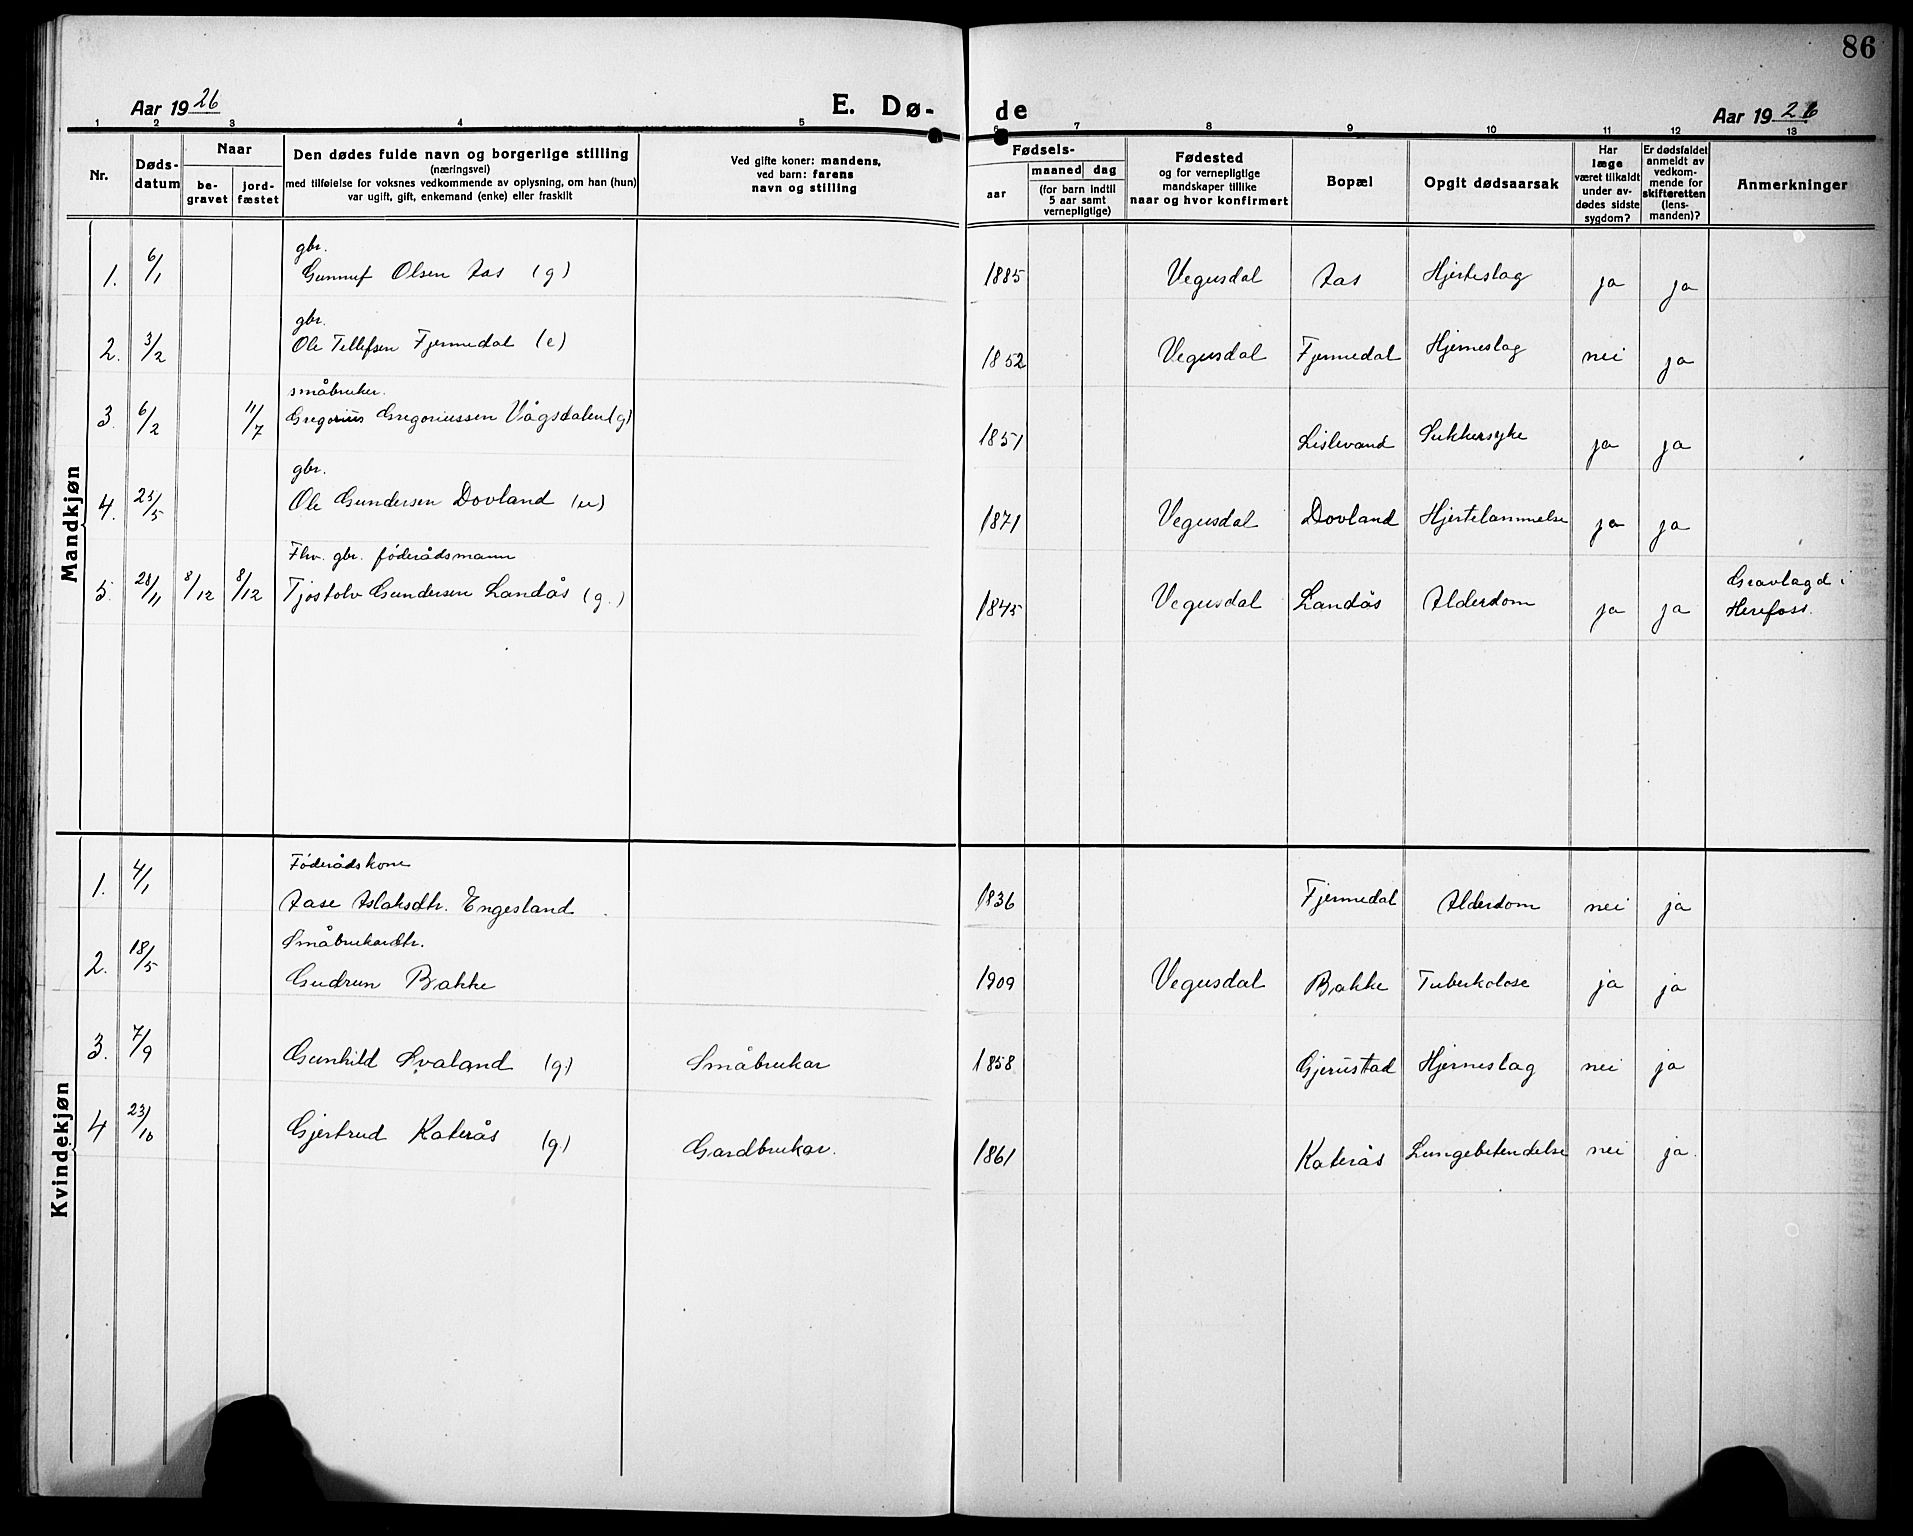 86
Aar 1926 E. Dø- de Aar 1926
1 2 3 4 5 6 7 8 9 10 11 12 13
Nr. Døds-datum Naar be-gravet jord-fæstet Den dødes fulde navn og borgerlige stilling (næringsvei) med tilføielse for voksnes vedkommende av oplysning, om han (hun) var ugift, gift, enkemand (enke) eller fraskilt Ved gifte koner: mandens, ved barn: farens navn og stilling Fødsels- aar maaned dag (for barn indtil 5 aar samt vernepligtige) Fødested og for vernepligtige mandskaper tillike naar og hvor konfirmert Bopæl Opgit dødsaarsak Har læge været tilkaldt under av-dødes sidste sygdom? Er dødsfaldet anmeldt av vedkom-mende for skifteretten (lens-manden)? Anmerkninger
Mandkjøn
gbr.
1. 6/1 Gunnuf Olsen Aas (g) 1885 Vegusdal Aas Hjerteslag ja ja
gbr.
2. 3/2 Ole Tellefsen Fjermedal (e) 1852 Vegusdal Fjermedal Hjerneslag nei ja
småbruker.
3. 6/2 11/7 Gregorius Gregoriussen Vågsdalen (g) 1851 Lislevand Sukkersyke ja ja
gbr.
4. 25/5 Ole Gundersen Dovland (u) 1871 Vegusdal Dovland Hjertelammelse ja ja
Fhv. gbr. føderådsmann
5. 28/11 8/12 8/12 Tjostolv Gundersen Landås (g.) 1845 Vegusdal Landås Alderdom ja ja Gravlagd i
Herefoss.
Kvindekjøn
Føderådskone
1. 4/1 Aase Aslaksdtr. Engesland 1836 Fjermedal Alderdom nei ja
Småbrukardtr.
2. 18/5 Gudrun Bakke 1909 Vegusdal Bakke Tuberkolose ja ja
3. 7/9 Gunhild Svaland (g) Småbrukar 1858 Gjerustad Hjerneslag nei ja
4 23/10 Gjertrud Katerås (g) Gardbrukar. 1861 Katerås Lungebetendelse nei ja.